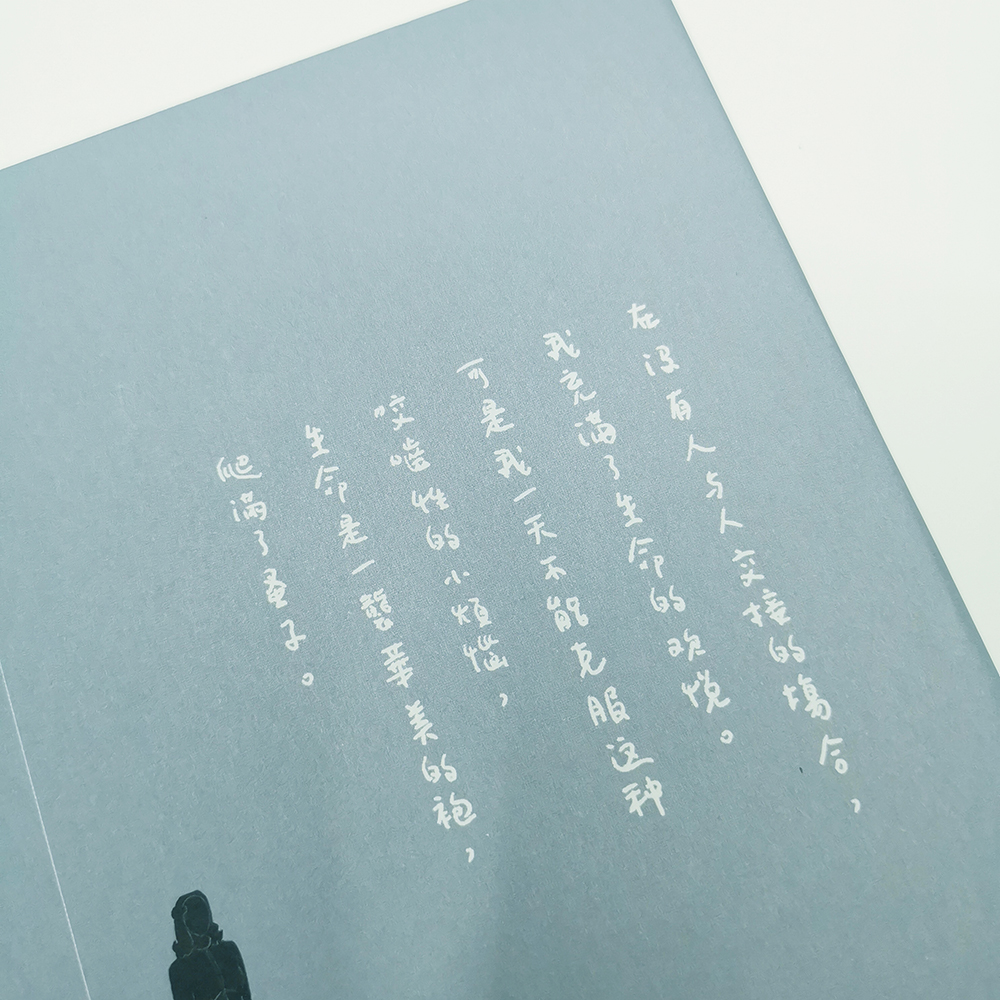 在没有人与人交接的場合，
我充滿了生命的欢悦。
可是我一天不能克服这种
咬嚙性的小煩惱，
生命是一襲華美的袍，
爬滿了蚤子。